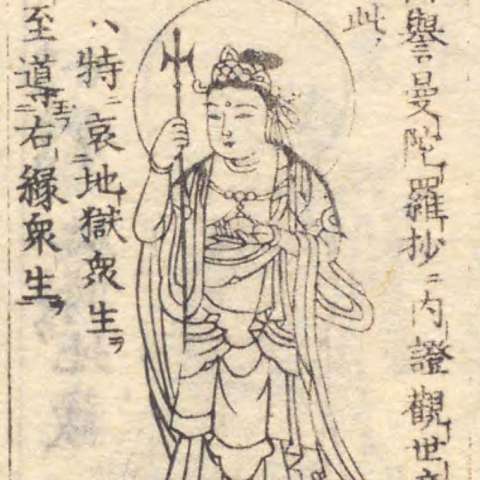 譽曼陀羅抄ニ内證觀世
此
ハ特ニ哀ニ地獄衆生ヲ
至導ニ玉フ右縁衆生ヲ